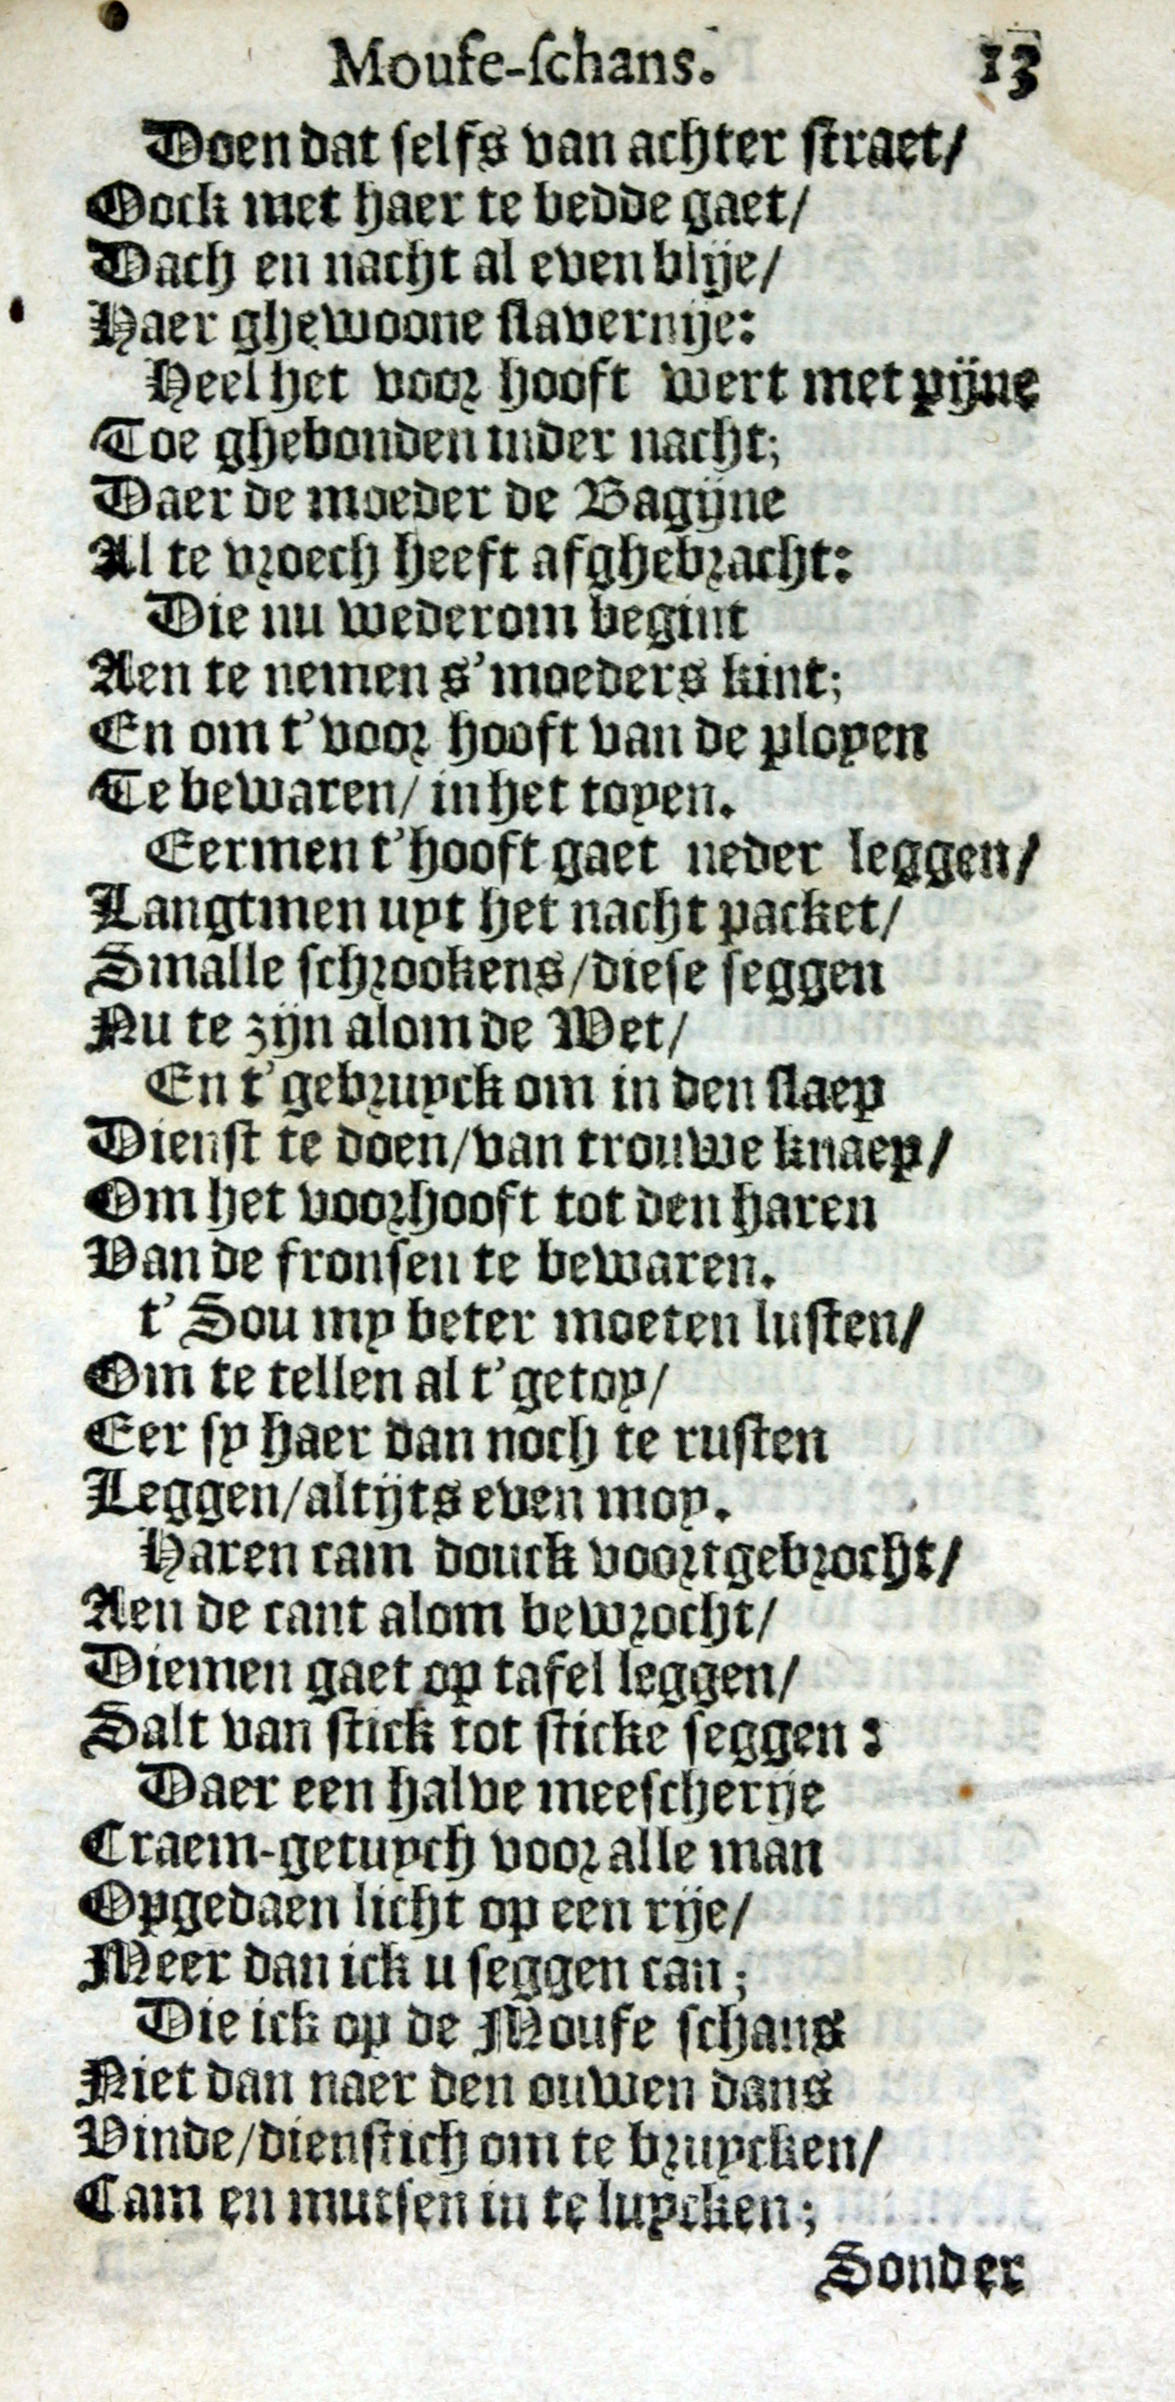 Moufe-ſchans. 13
Doen dat ſelfs van achter ſtraet/
Oock met haer te bedde gaet/
Dach en nacht al even blije/
Haer ghewoone ſlavernije:
Heel het voor hooft wert met pijne
Toe ghebonden inder nacht;
Daer de moeder de Bagijne
Al te vroech heeft afghebracht:
Die nu wederom begint
Aen te nemen s'moeders kint;
En om t'voor hooft van de ployen
Te bewaren/ in het toyen.
Eermen t'hooft gaet neder leggen/
Langtmen uyt het nacht packet/
Smalle ſchrookens/dieſe ſeggen
Nu te zijn alom de Wet/
En t'gebruyck om in den ſlaep
Dienſt te doen/van trouwe knaep/
Om het voorhooft tot den haren
Van de fronſen te bewaren.
t'Sou my beter moeten luſten/
Om te tellen al t'getoy/
Eer ſy haer dan noch te ruſten
Leggen/altijts even moy.
Haren cam douck voortgebrocht/
Aen de cant alom bewrocht/
Diemen gaet op tafel leggen/
Salt van ſtick tot ſticke ſeggen:
Daer een halve meeſcherije
Craem-getuych voor alle man
Opgedaen licht op een rije/
Meer dan ick u ſeggen can;
Die ick op de Moufe ſchans
Niet dan naer den ouwen dans
Vinde/dienſtich om te bruycken/
Cam en mutſen in te luycken;
Sonder